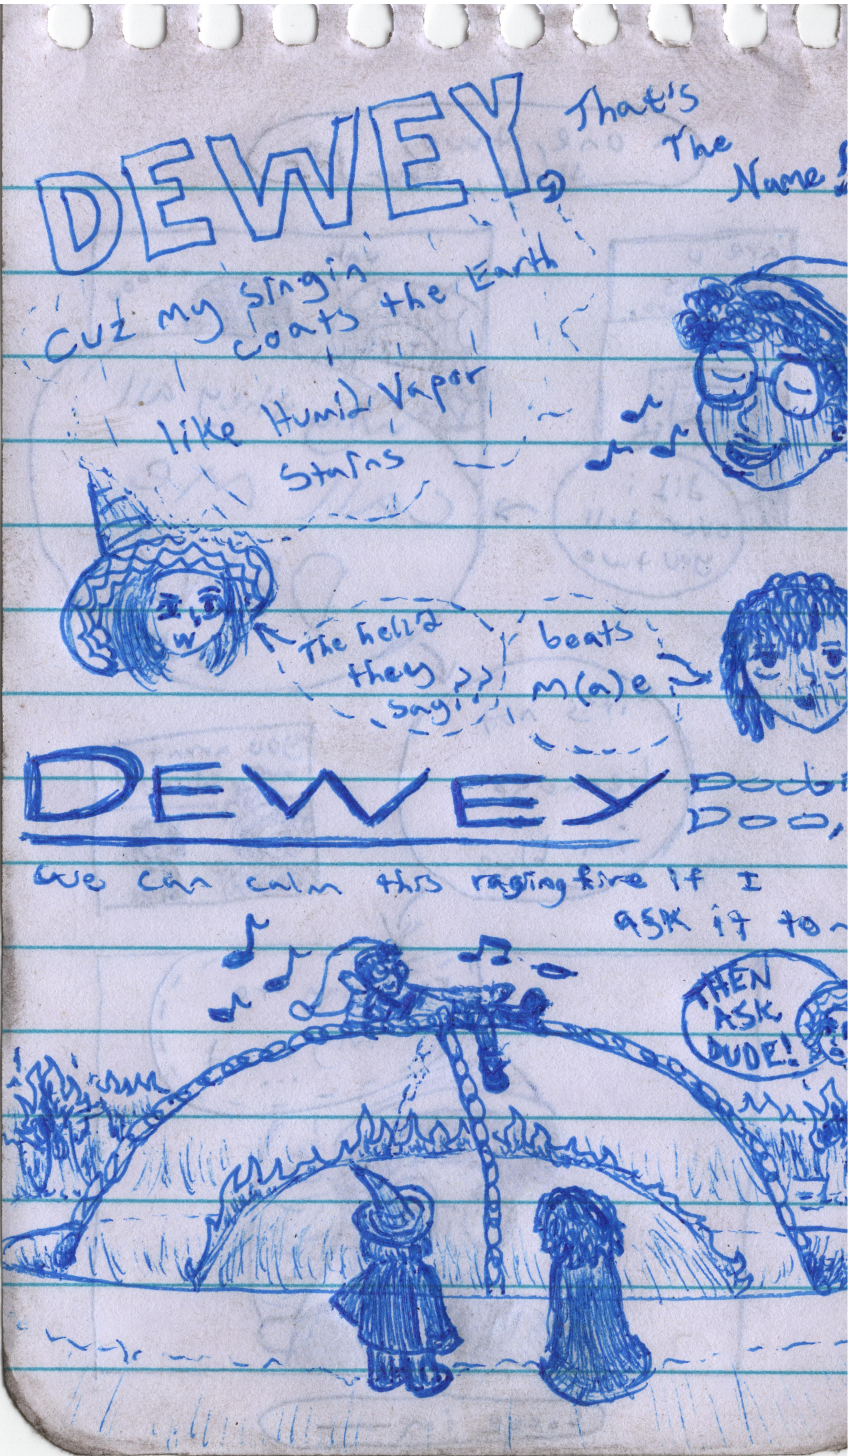 DEWEY,
That's
The
Name!
cuz my singin
coats the Earth
like Humid Vapor
Stains
The hell?
they
say??
beats
m(a)e
DEWEY
Doobi
Doo,
we can calm this raging fire if I
ask it to~
THEN
ASK
DUDE!